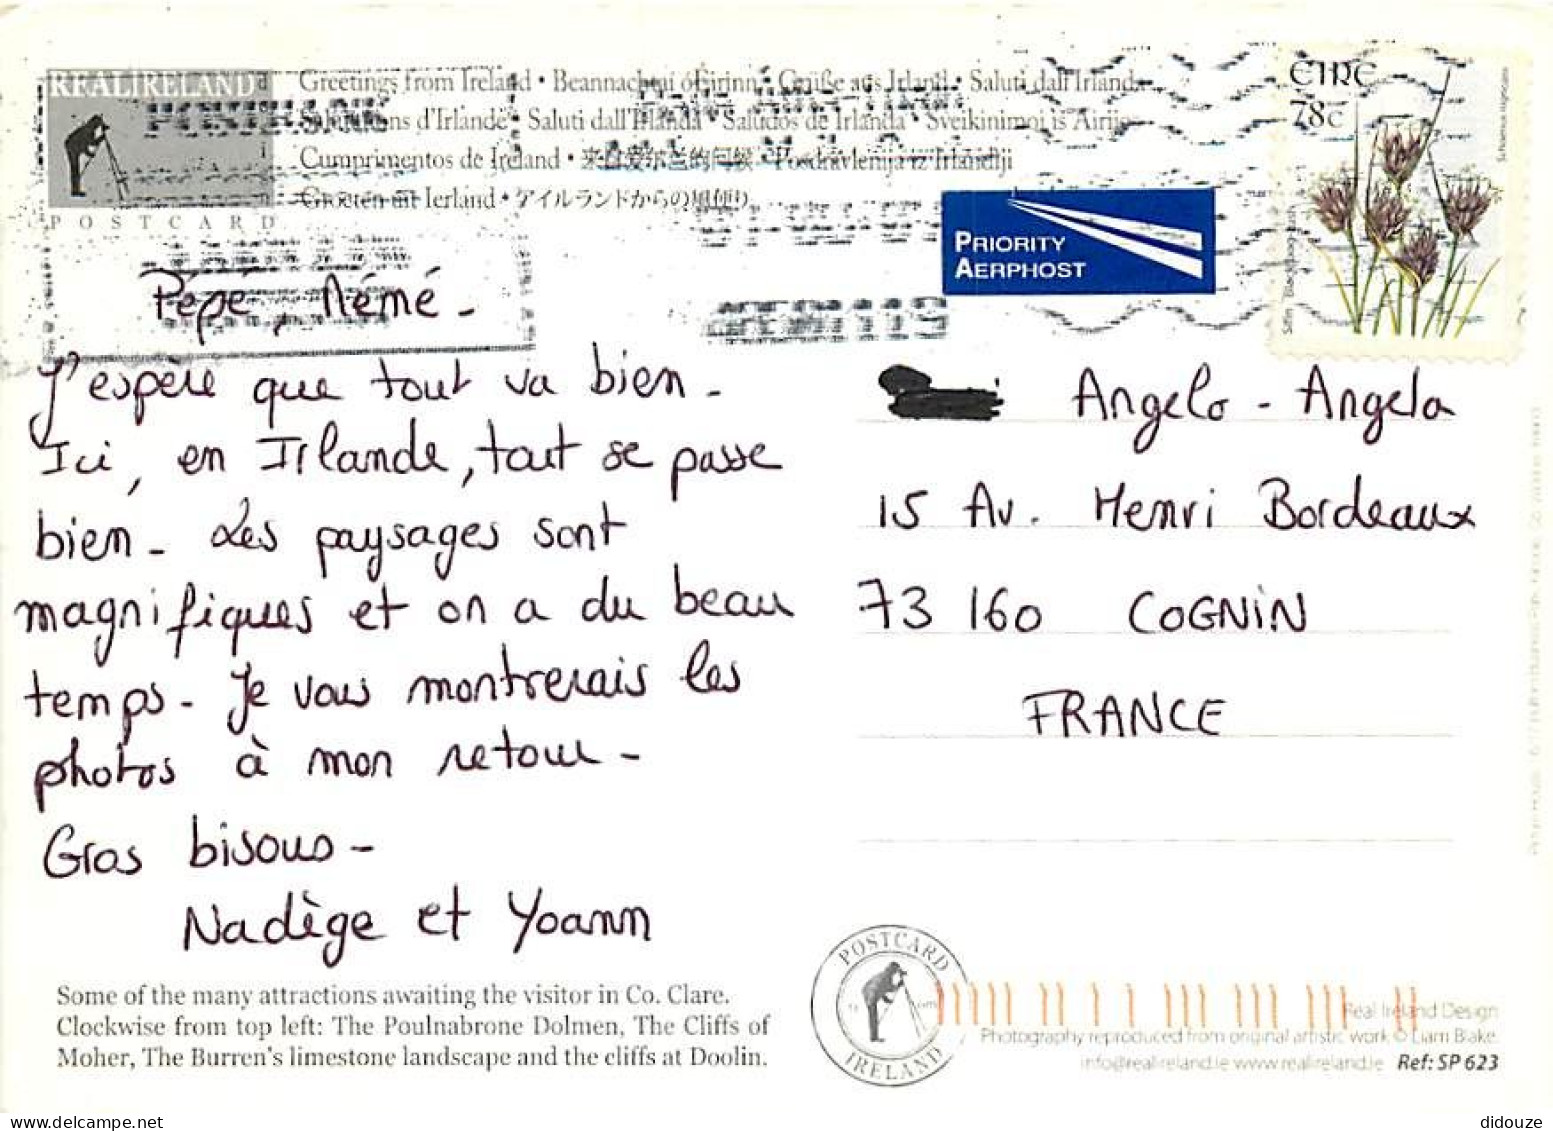 REALIRELAND
POSTCARD
Greetings from Ireland • Beannachtaí ó Éirinn • Grüße aus Irland • Saluti dall'Irlanda
Salutations d'Irlande • Saluti dall'Irlanda • Saludos de Irlanda • Sveikinimai is Airijos
Cumprimentos de Ireland • 来自爱尔兰的问候 • Pozdravlenija iz Irlandiji
Groeten uit Ierland • アイルランドからの風便り
PRIORITY
AERPHOST
EIRE
78c
Pépé, Mémé -
J'espère que tout va bien -
Ici, en Irlande, tout se passe
bien - Les paysages sont
magnifiques et on a du beau
temps - Je vous montrerais les
photos à mon retour -
Gros bisous -
Nadège et Yoann
Angelo - Angela
15 Av. Henri Bordeaux
73 160 COGNIN
FRANCE
Some of the many attractions awaiting the visitor in Co. Clare.
Clockwise from top left: The Poulnabrone Dolmen, The Cliffs of
Moher, The Burren's limestone landscape and the cliffs at Doolin.
POSTCARD
IRELAND
Real Ireland Design
Photography reproduced from original artistic work © Liam Blake.
info@realireland.ie www.realireland.ie Ref: SP 623
didouze